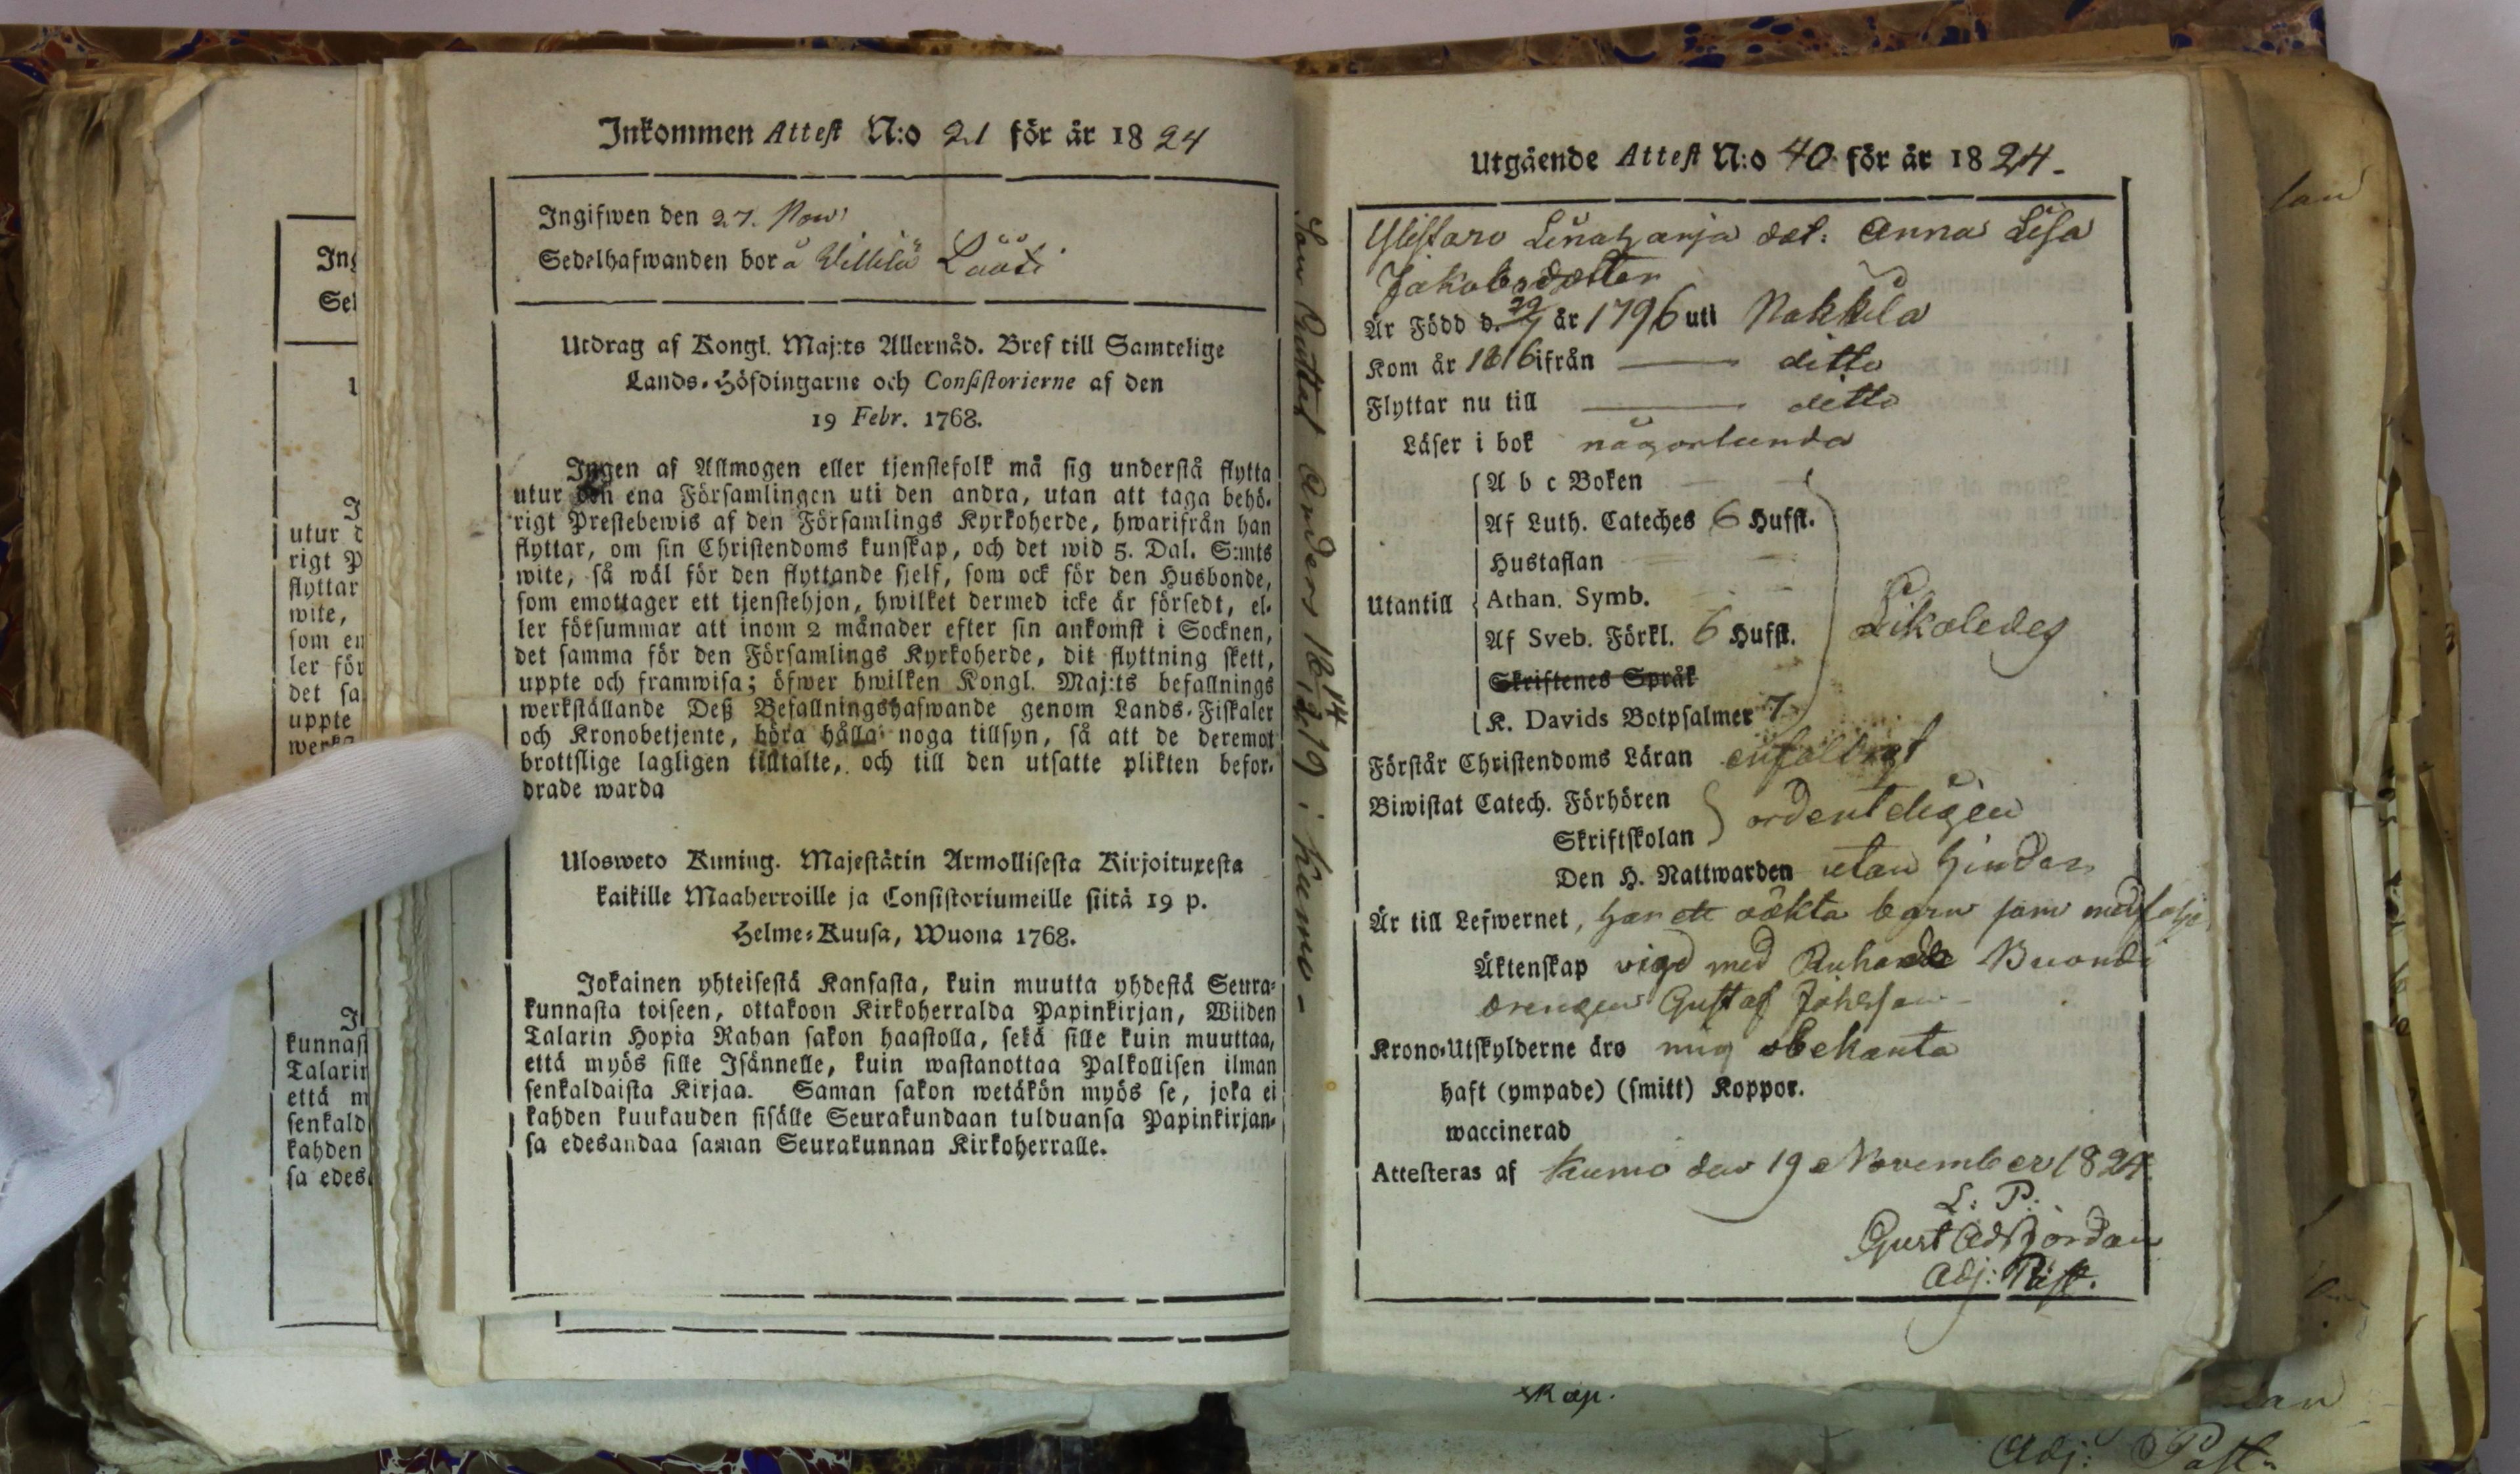 Inkommen Attest N:o 21 för år 1824
Ingifwen den 27. Nov:
Sedelhafwanden bor å Willilä
Utdrag af Kongl. Maj:ts Allernåd. Bref till Samtelige
Lands-Höfdingarne och Consistorierne af den
19 Febr. 1768.
Ingen af Allmogen eller tjenstefolk må sig understå flytta
utur den ena Församlingen uti den andra, utan att taga behö-
rigt Prestebewis af den Församlings Kyrkoherde, hwarifrån han
flyttar, om sin Christendoms kunskap, och det wid 5. Dal. S:mts
wite, så wäl för den flyttande sjelf, som ock för den Husbonde,
som emottager ett tjenstehjon, hwilket dermed icke är försedt, el-
ler försummar att inom 2 månader efter sin ankomst i Socknen,
det samma för den Församlings Kyrkoherde, dit flyttning skett,
uppte och framwisa; öfwer hwilken Kongl. Maj:ts befallnings
werkställande Deß Befallningshafwande genom Lands-Fiskaler
och Kronobetjente, böra hålla noga tillsyn, så att de deremot
brottslige lagligen tilltalte, och till den utsatte plikten befor-
drade warda
Ulosweto Kuning. Majestätin Armollisesta Kirjoituxesta
kaikille Maaherroille ja Consistoriumeille siitä 19 p.
Helme-Kuusa, Wuona 1768.
Jokainen yhteisestä Kansasta, kuin muutta yhdestä Seura-
kunnasta toiseen, ottakoon Kirkoherralda Papinkirjan, Wiiden
Talarin Hopia Rahan sakon haastolla, sekä sille kuin muuttaa,
että myös sille Isännelle, kuin wastanottaa Palkollisen ilman
senkaldaista Kirjaa. Saman sakon wetäkön myös se, joka ei
kahden kuukauden sisälle Seurakundaan tulduansa Papinkirjan-
sa edesandaa saman Seurakunnan Kirkoherralle.
Utgående Attest N:o 40 för år 1824.
Ylistaro dot: Anna Lisa
Jakobsdotter
Är Född d. 29/7 år 1796 uti Nakkila
Kom år 1816 ifrån ditto
Flyttar nu till ditto
Läser i bok någorlunda
A b c Boken
Af Luth. Cateches 6 Hufst.
Hustaflan
Utantill Athan. Symb.
Af Sveb. Förkl. 6 Hufst. Likaledes
Skriftenes Språk
K. Davids Botpsalmer 7
Förstår Christendoms Läran enfaldigt
Biwistat Catech. Förhören
Skriftskolan ordenteligen
Den H. Nattwarden utan hinder
Är till Lefwernet, har ett oäkta barn som medfölje
Äktenskap vigd med
drengen Gustaf Johesson
Krono-Utskylderne äro mig obekanta
haft (ympade) (smitt) Koppor.
waccinerad
Attesteras af Kumo den 19 November 1824.
L: P:
Gust Ad
Adj: Past.
i Kumo
Adj: Past.